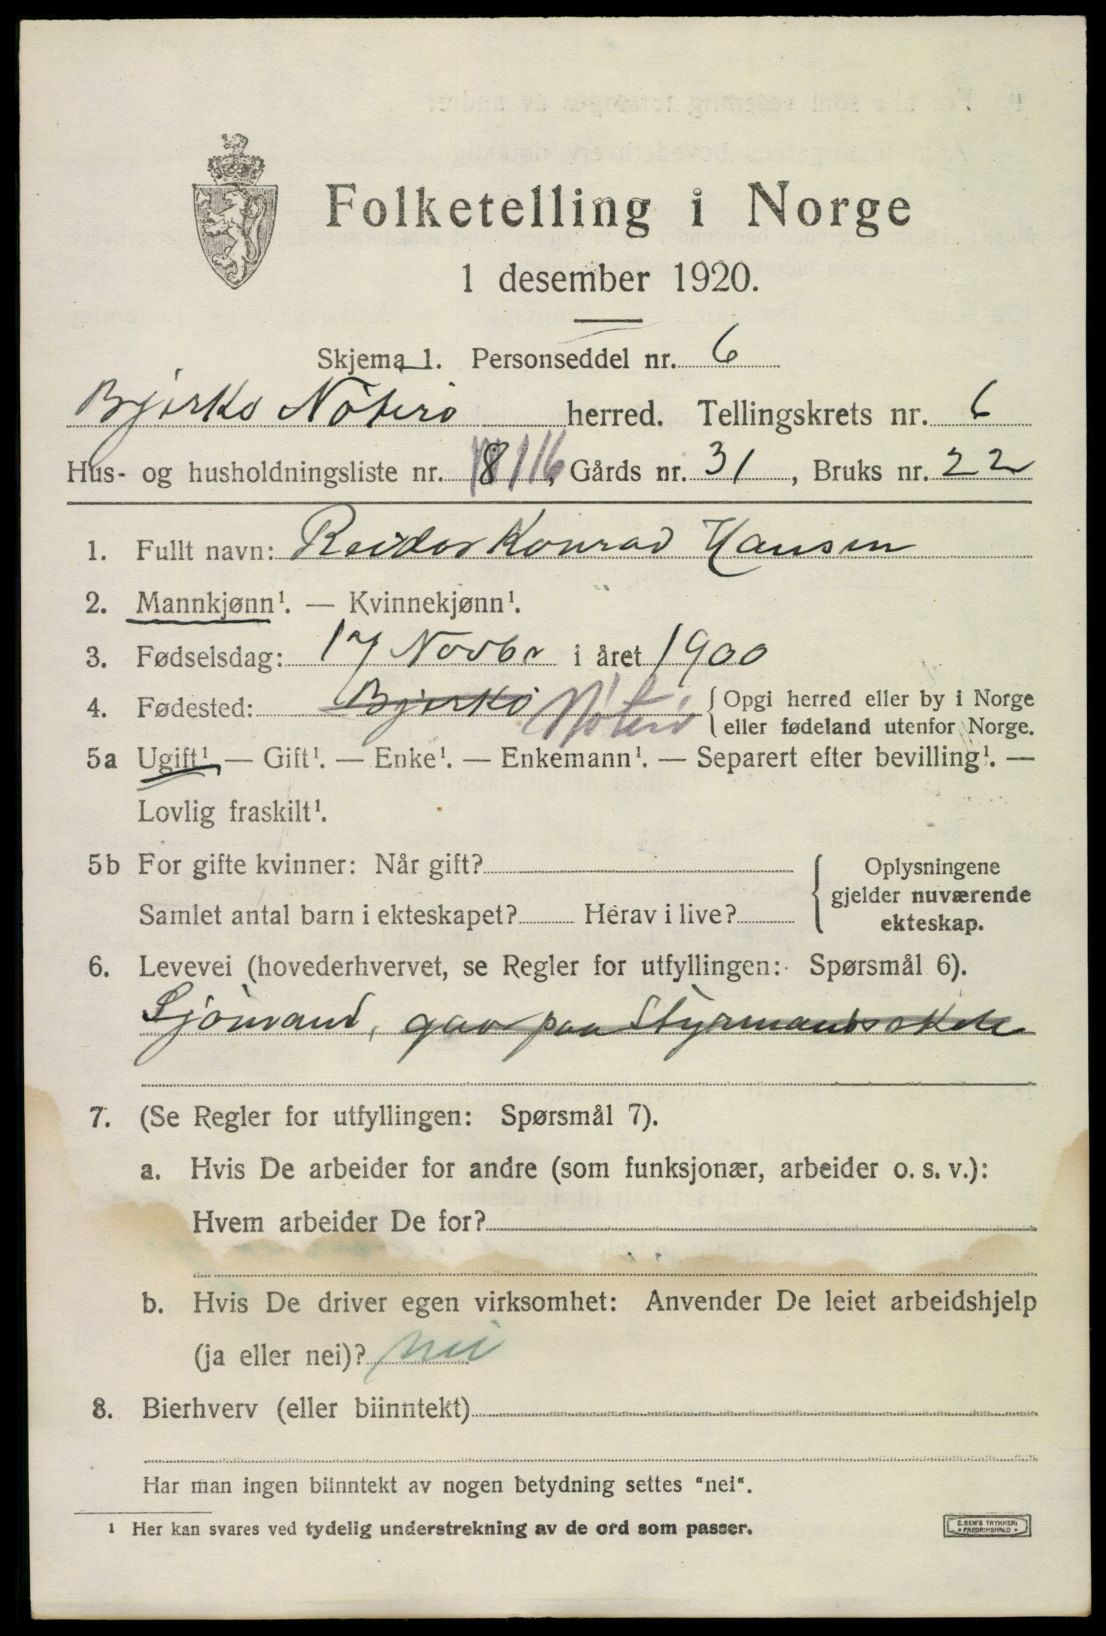 Folketelling i Norge
1 desember 1920.
Skjema 1. Personseddel nr. 6
Bjerkø Nøterø herred. Tellingskrets nr. 6
Hus- og husholdningsliste nr. 8 116, Gårds nr. 31, Bruks nr. 22
1. Fullt navn: Reidar Konrad Hansen
2. Mannkjønn¹. — Kvinnekjønn¹.
3. Fødselsdag: 17 Novbr i året 1900
4. Fødested: Bjerkö Nöterö { Opgi herred eller by i Norge
eller fødeland utenfor Norge.
5a Ugift¹ — Gift¹. — Enke¹. — Enkemann¹. — Separert efter bevilling¹. —
Lovlig fraskilt¹.
5b For gifte kvinner: Når gift?
Samlet antal barn i ekteskapet? Herav i live?
{ Oplysningene
gjelder nuværende
ekteskap.
6. Levevei (hovederhvervet, se Regler for utfyllingen: Spørsmål 6).
Sjömand, gaar paa Styrmandsskole
7. (Se Regler for utfyllingen: Spørsmål 7).
a. Hvis De arbeider for andre (som funksjonær, arbeider o. s. v.):
Hvem arbeider De for?
b. Hvis De driver egen virksomhet: Anvender De leiet arbeidshjelp
(ja eller nei)? nei
8. Bierhverv (eller biinntekt)
Har man ingen biinntekt av nogen betydning settes "nei".
¹ Her kan svares ved tydelig understrekning av de ord som passer.
E. SEM'S TRYKKERI
FREDRIKSHALD